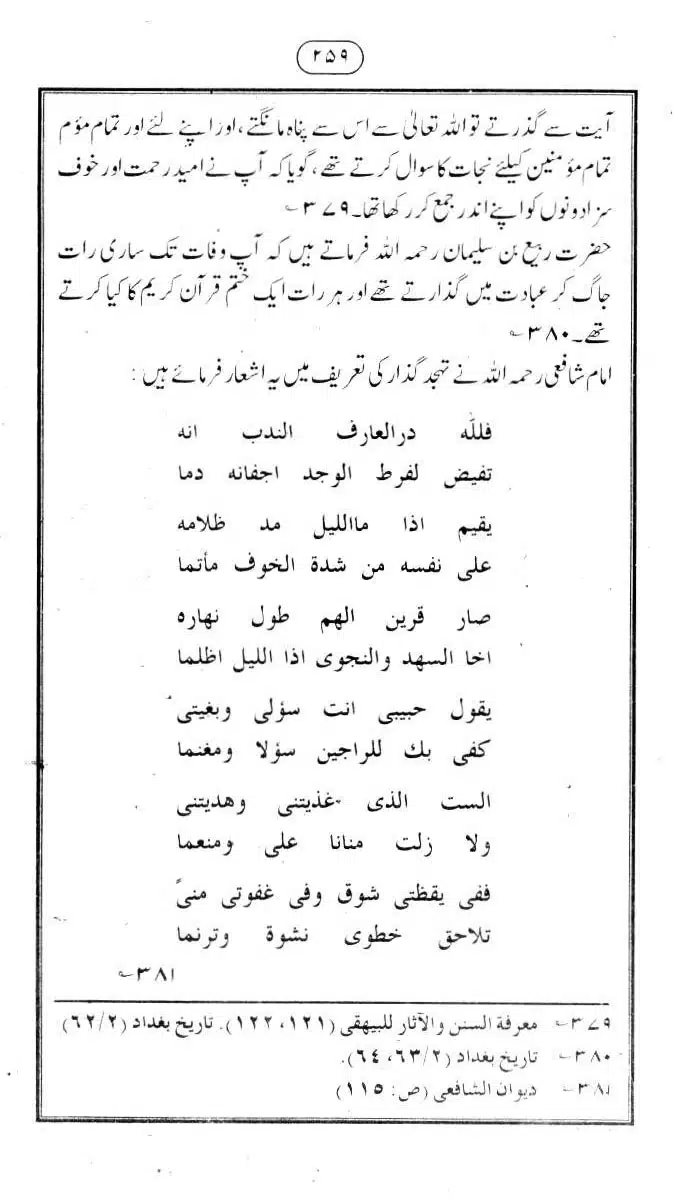 ۲۵۹
آیت سے گذرتے تو اللہ تعالیٰ سے اس سے پناہ مانگتے، اور اپنے لئے اور تمام مؤم
تمام مؤمنین کیلئے نجات کا سوال کرتے تھے، گویا کہ آپ نے امید رحمت اور خوف
سزا دونوں کو اپنے اندر جمع کر رکھا تھا۔ ۳۷۹؎
حضرت ربیع بن سلیمان رحمہ اللہ فرماتے ہیں کہ آپ وفات تک ساری رات
جاگ کر عبادت میں گذارتے تھے اور ہر رات ایک ختم قرآن کریم کا کیا کرتے
تھے۔ ۳۸۰؎
امام شافعی رحمہ اللہ نے تہجد گذار کی تعریف میں یہ اشعار فرمائے ہیں:
فلله درالعارف الندب انه
تفيض لفرط الوجد اجفانه دما
يقيم اذا ماالليل مد ظلامه
على نفسه من شدة الخوف مأتما
صار قرين الهم طول نهاره
اخا السهد والنجوى اذا الليل اظلما
يقول حبيبى انت سؤلى وبغيتى
كفى بك للراجين سؤلا ومغنما
الست الذى غذيتنى وهديتنى
ولا زلت منانا على ومنعما
ففى يقظتى شوق وفى غفوتى منىً
تلاحق خطوى نشوة وترنما
۳۸۱؎
۳۷۹؎ معرفة السنن والآثار للبيهقى (۱۲۱، ۱۲۲). تاريخ بغداد (۶۲/۲)
۳۸۰؎ تاريخ بغداد (۶۳/۲، ۶۴).
۳۸۱؎ ديوان الشافعى (ص: ۱۱۵)